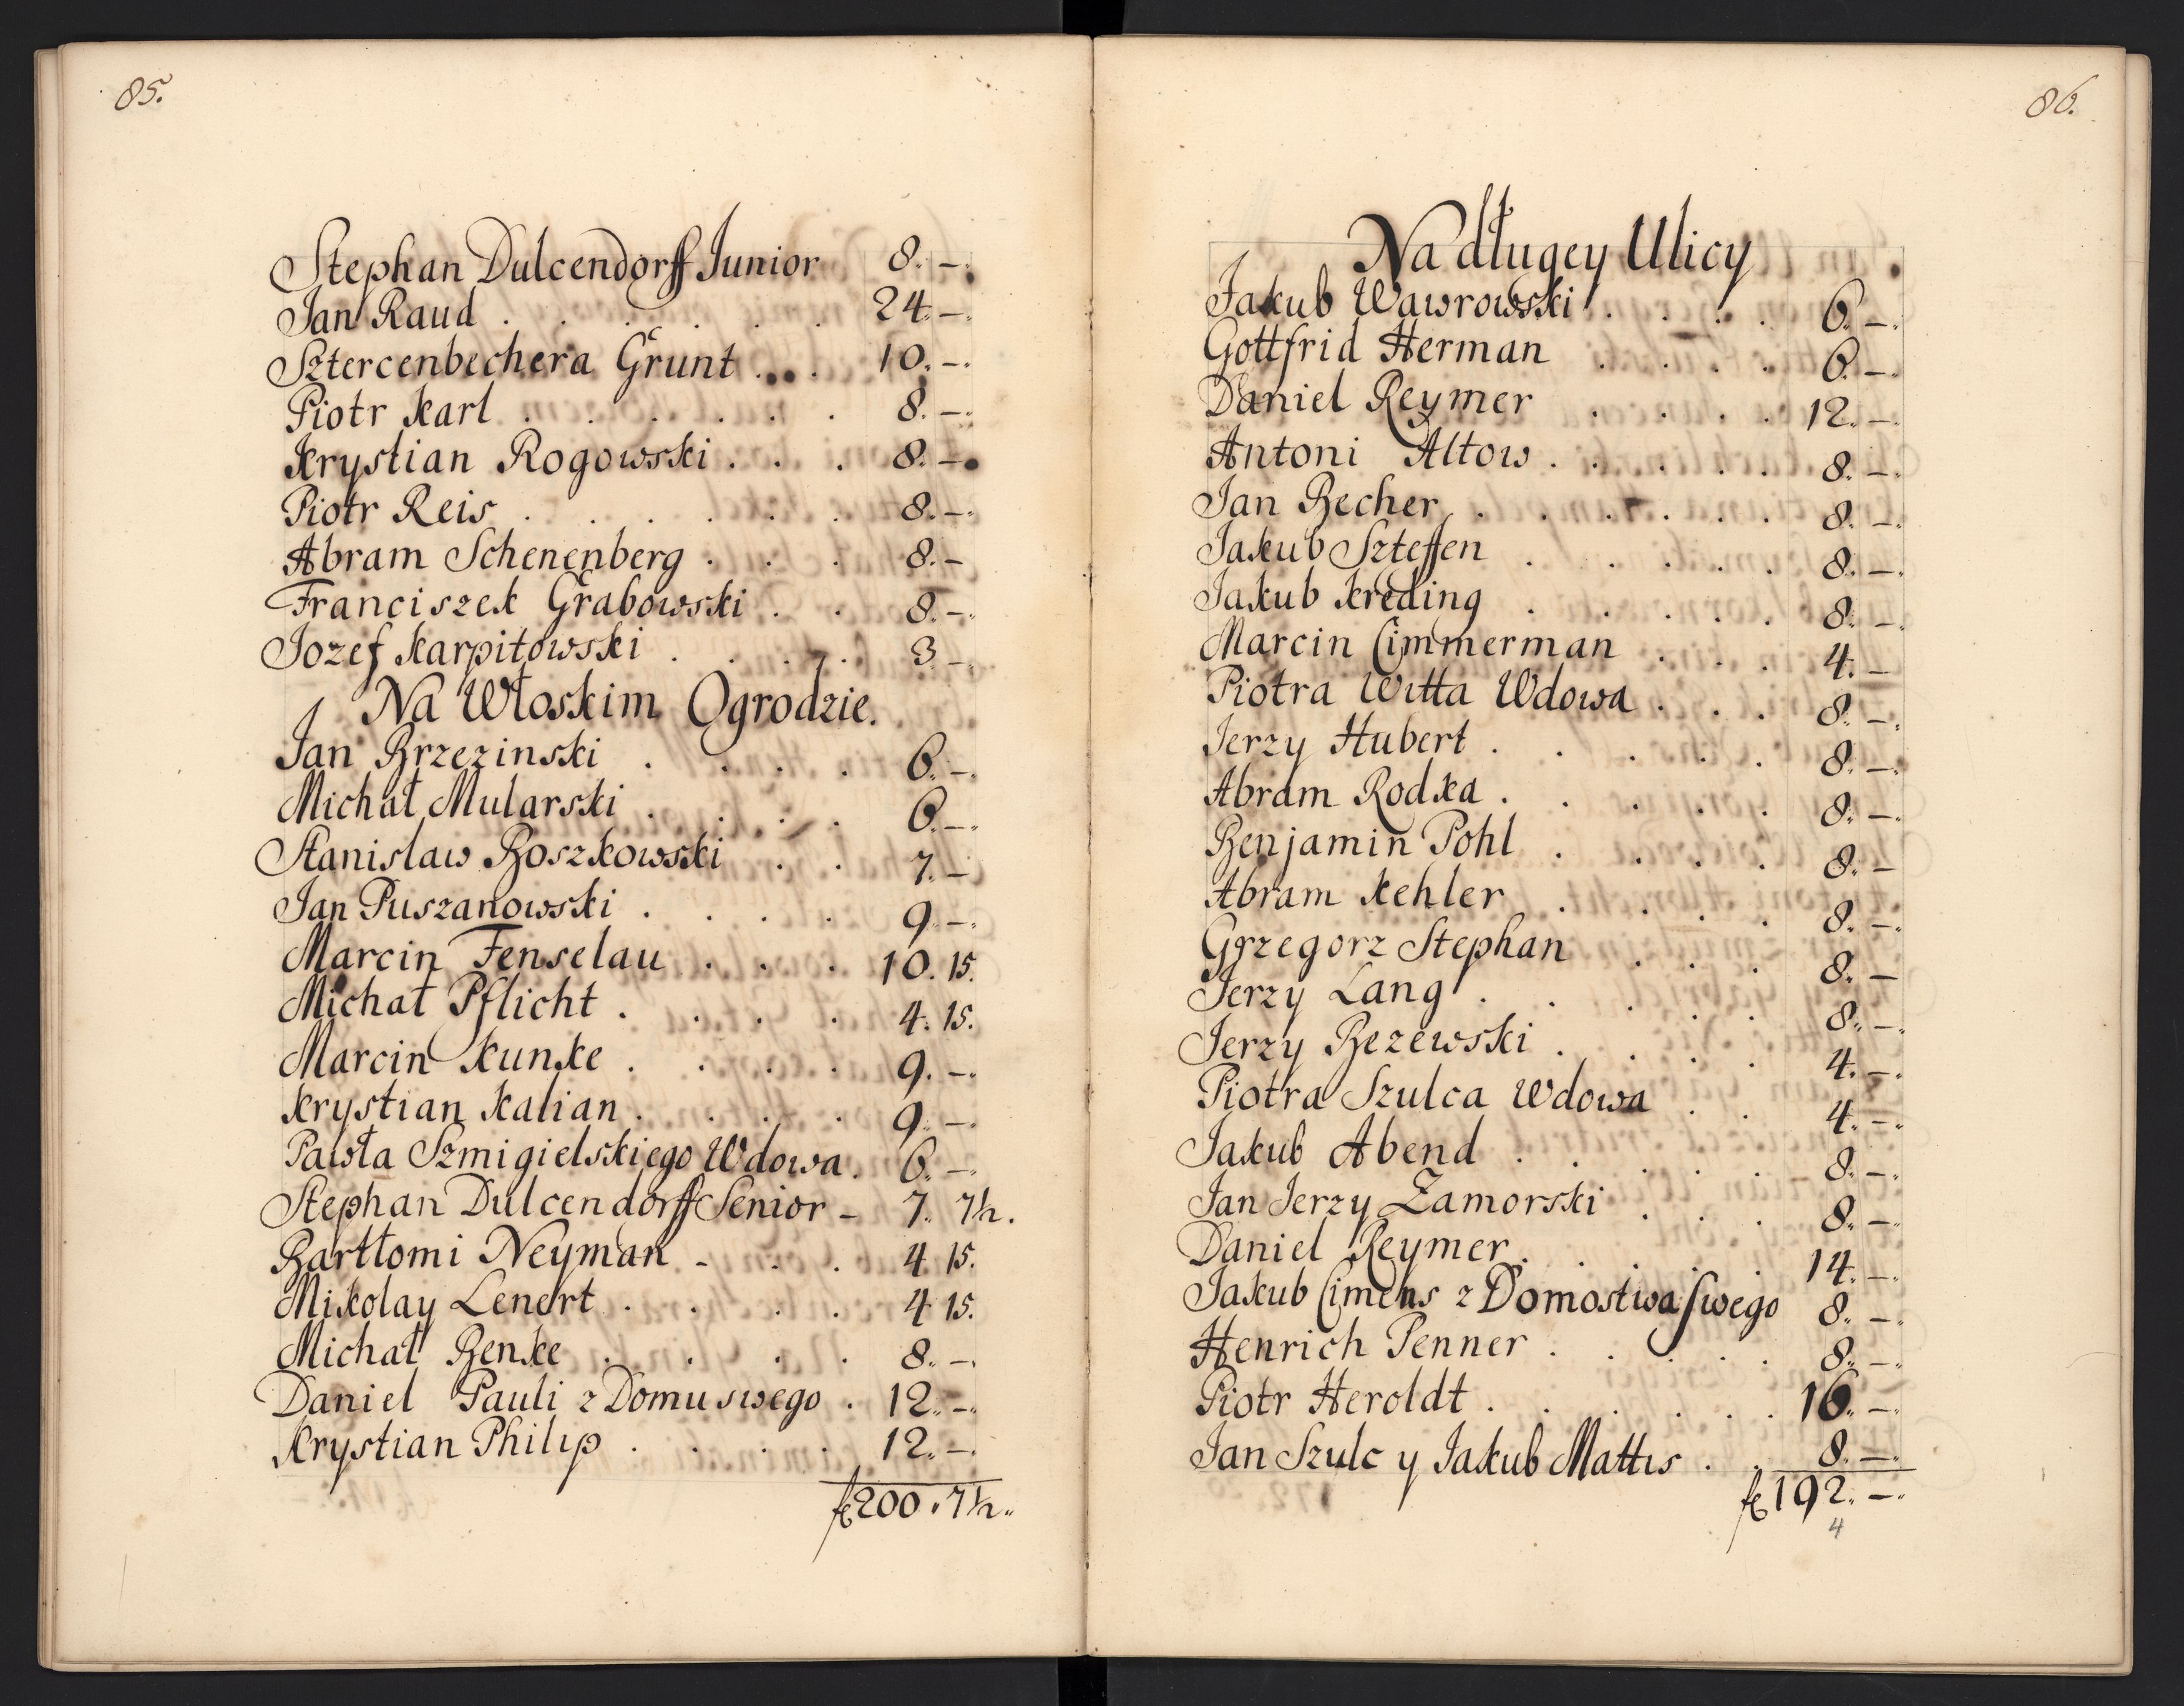 85.
Stephan Dulcendorff Junior 8. –.
Jan Raud . . . . . . 24. –.
Sztercenbechera Grunt . . . 10. –.
Piotr Karl . . . . . . 8. –.
Krystian Rogowski . . . 8. –.
Piotr Reis . . . . . . 8. –.
Abram Schenenberg . . . 8. –
Franciszek Grabowski . . 8. –.
Jozef Karpitowski . . . . 3 –.
Na Włoskim Ogrodzie.
Jan Brzezinski . . . . 6. –.
Michał Mularski . . . . 6. –.
Stanislaw Boszkowski . . 7. –
Jan Puszanowski . . . . 9. –.
Marcin Fenselau . . . 10. 15.
Michał Pflicht . . . . 4. 15.
Marcin Kunke . . . . 9. –.
Krystian Kalian . . . . 9. –.
Pawła Szmigielskiego Wdowa . 6. –.
Stephan Dulcendorff Senior – 7. 7½.
Barttomi Neyman – . . 4 15.
Mikolay Lenert . . . . 4 15.
Michał Benke . . . . 8. –.
Daniel Pauli z Domu swego . 12. –.
Krystian Philip . . . . 12. –.
fl 200. 7½.
86.
Na długey Ulicy
Jakub Wawrowski . . . . 6. –.
Gottfrid Herman . . . . 6. –.
Daniel Reymer . . . . 12. –.
Antoni Altow . . . . . 8. –.
Jan Becher . . . . . . 8. –.
Jakub Szteffen . . . . . 8. –.
Jakub Kreding . . . . . 8. –.
Marcin Cimmerman . . . 4. –
Piotra Witta Wdowa . . . 8. –.
Jerzy Hubert . . . . . 8. –.
Abram Rodka . . . . . 8. –.
Benjamin Pohl . . . . 8. –
Abram Kehler . . . . 8. –.
Grzegorz Stephan . . . 8. –
Jerzy Lang . . . . . 8. –.
Jerzy Bezewski . . . . 4. –.
Piotra Szulca Wdowa . . 4. –.
Jakub Abend . . . . . 8. –.
Jan Jerzy Zamorski . . . 8. –.
Daniel Reymer . . . . 14. –.
Jakub Cimens z Domostwa swego 8. –.
Henrich Penner . . . . 8. –.
Piotr Heroldt . . . . . 16. –.
Jan Szulc y Jakub Mattis . . 8. –.
fl 192. –.
4